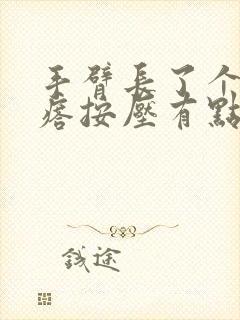 手臂長了个
痞按壓有點
錢途